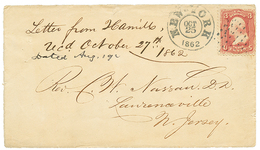 Letter from Hamill
Recd October 27th
1862
Dated Aug.
NEW YORK
OCT
25
1862
3 3
Rev. C. W. Nassau, D.D.
Lawrenceville
N. Jersey.